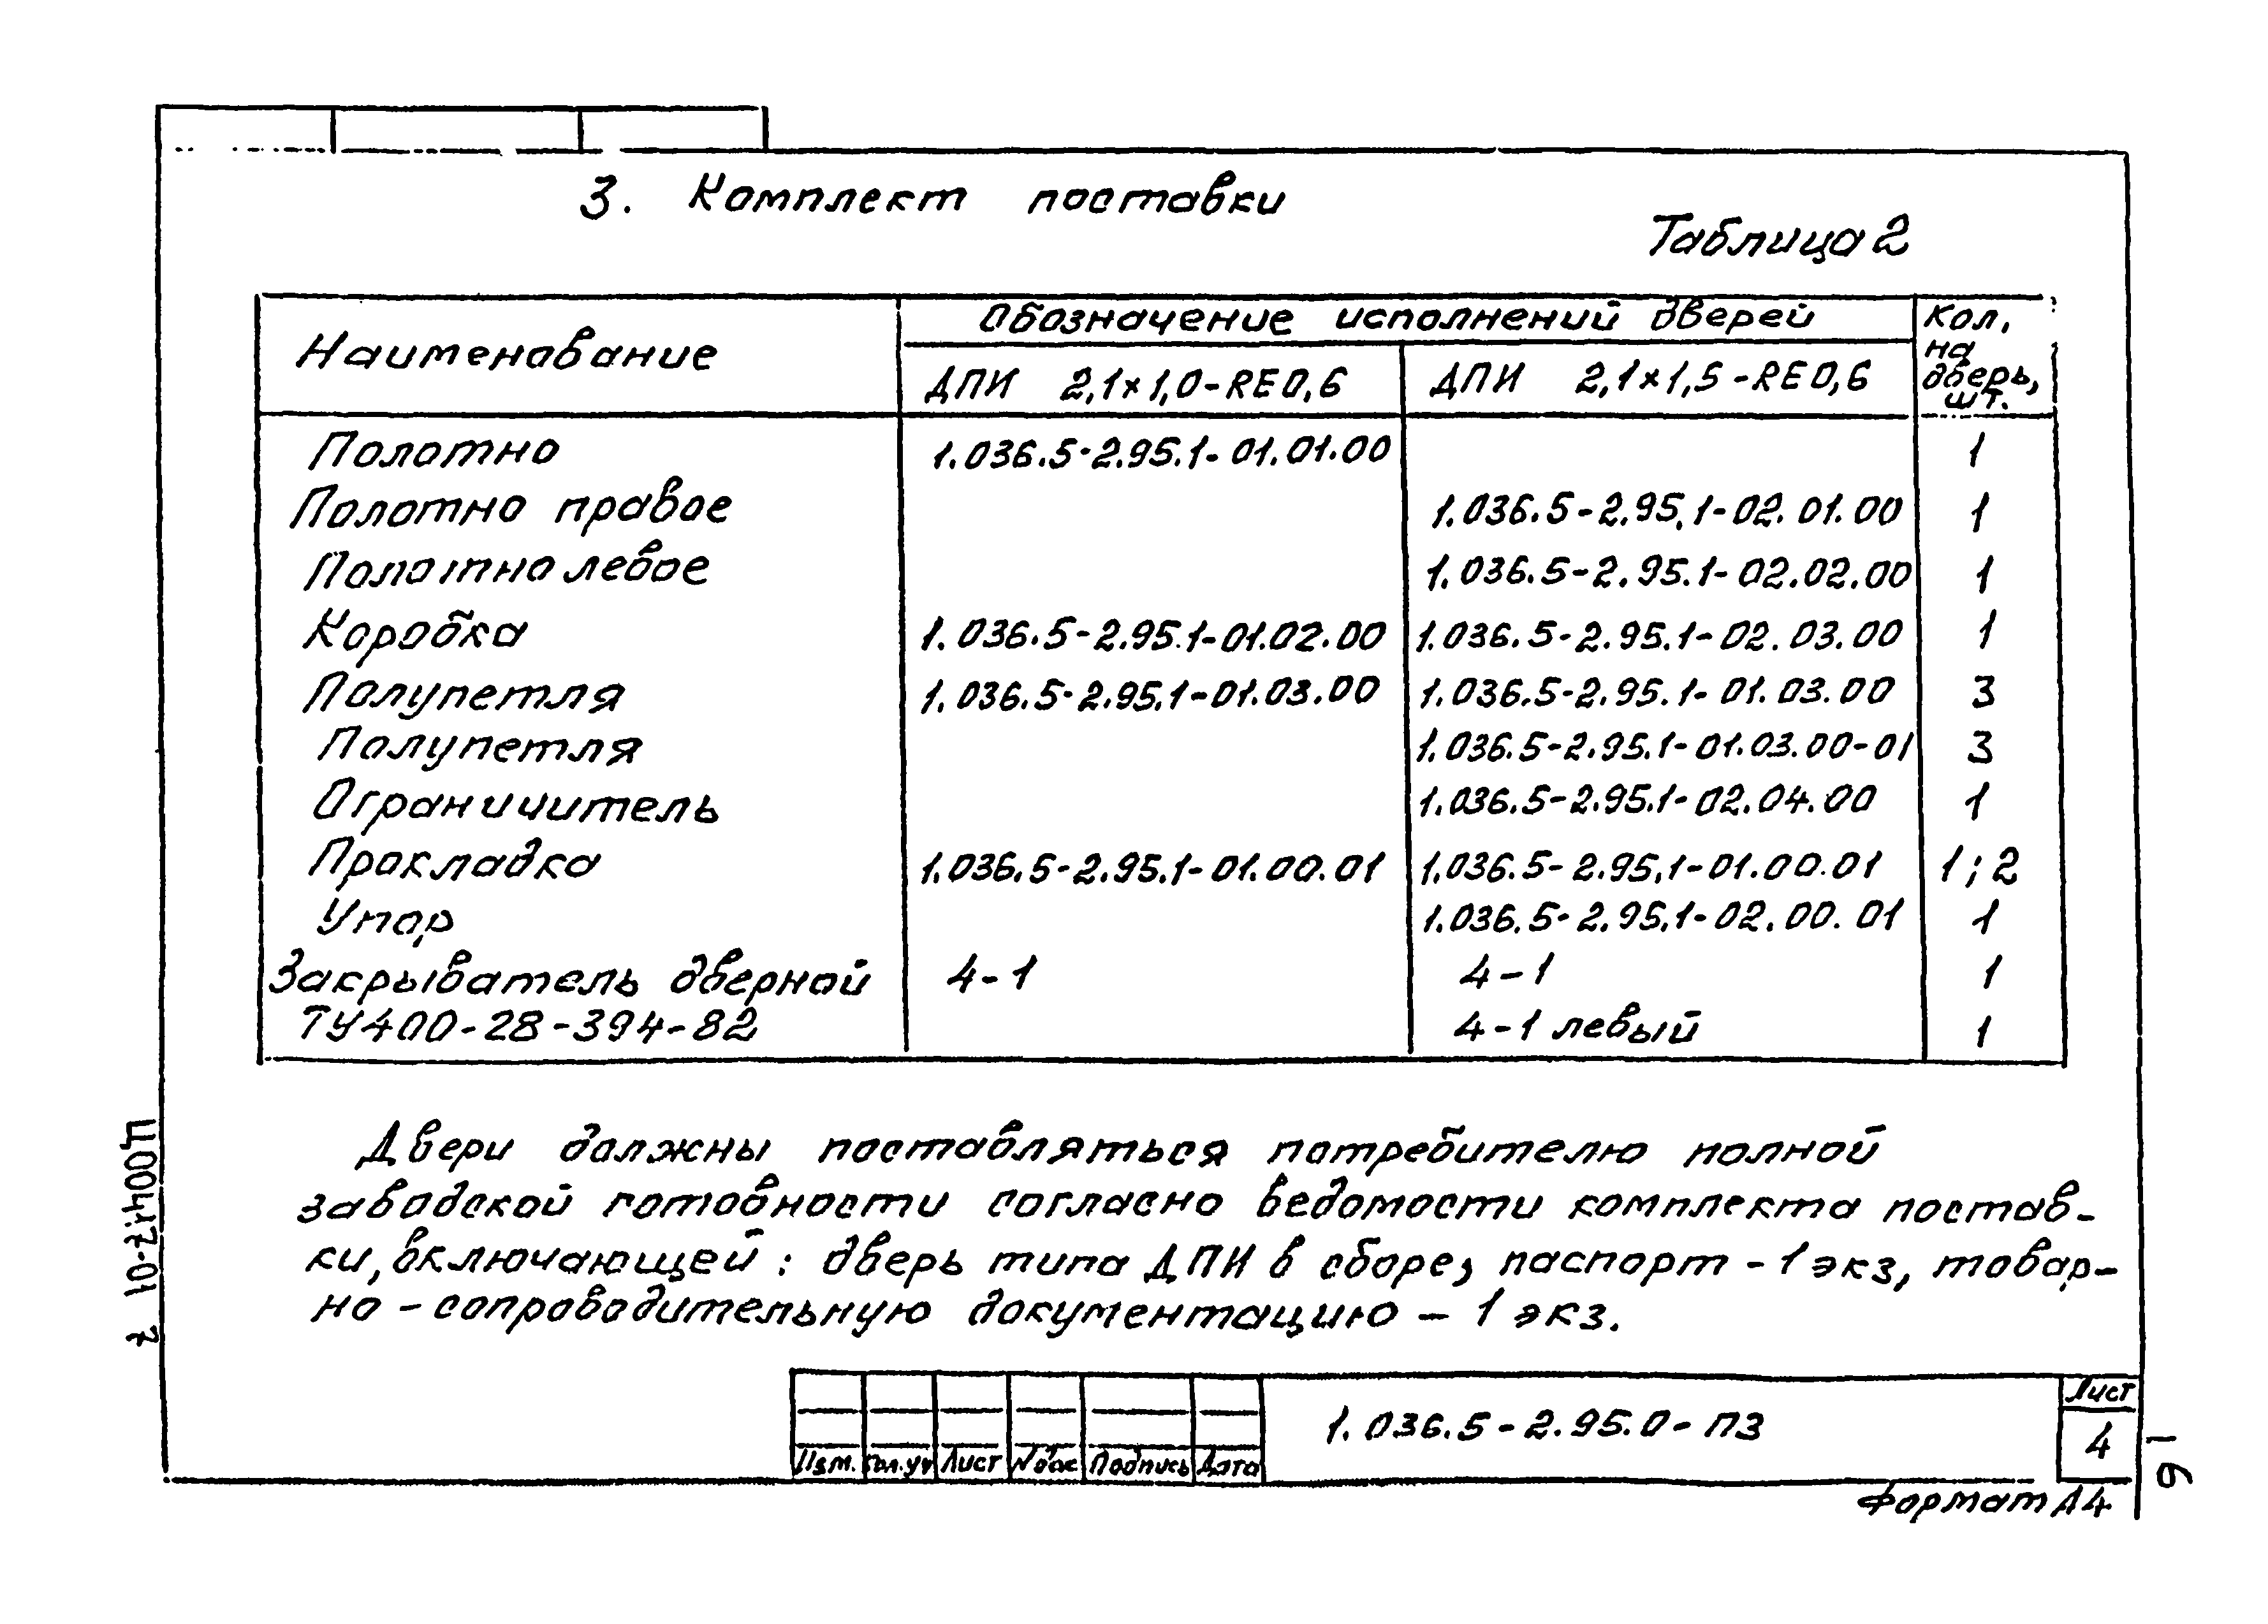 3. Комплект поставки
Таблица 2
Наименование Обозначение исполнений дверей Кол, на дверь, шт.
ДПИ 2,1×1,0-RE0,6 ДПИ 2,1×1,5-RE0,6
Полотно 1.036.5-2.95.1-01.01.00 1
Полотно правое 1.036.5-2.95.1-02.01.00 1
Полотно левое 1.036.5-2.95.1-02.02.00 1
Коробка 1.036.5-2.95.1-01.02.00 1.036.5-2.95.1-02.03.00 1
Полупетля 1.036.5-2.95.1-01.03.00 1.036.5-2.95.1-01.03.00 3
Полупетля 1.036.5-2.95.1-01.03.00-01 3
Ограничитель 1.036.5-2.95.1-02.04.00 1
Прокладка 1.036.5-2.95.1-01.00.01 1.036.5-2.95.1-01.00.01 1;2
Упор 1.036.5-2.95.1-02.00.01 1
Закрыватель дверной 4-1 4-1 1
ТУ400-28-394-82 4-1 левый 1
Двери должны поставляться потребителю полной
заводской готовности согласно ведомости комплекта постав-
ки, включающей: дверь типа ДПИ в сборе, паспорт - 1 экз, товар-
но-сопроводительную документацию - 1 экз.
Ц00417-01 7
1.036.5-2.95.0-ПЗ
Лист
4
Изм. Кол.уч Лист №док Подпись Дата
Формат А4